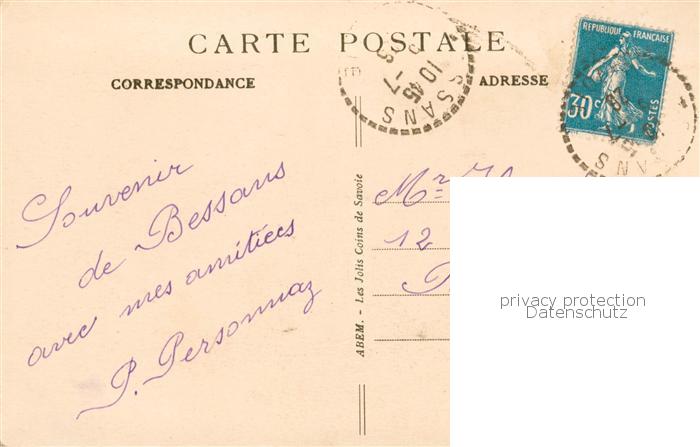 CARTE POSTALE
CORRESPONDANCE
ADRESSE
REPUBLIQUE FRANÇAISE
30c
POSTES
SSANS
10 45
Souvenir
de Bessans
avec mes amitiées
P. Personnaz
ABEM. - Les Jolis Coins de Savoie
Mr
12
privacy protection
Datenschutz